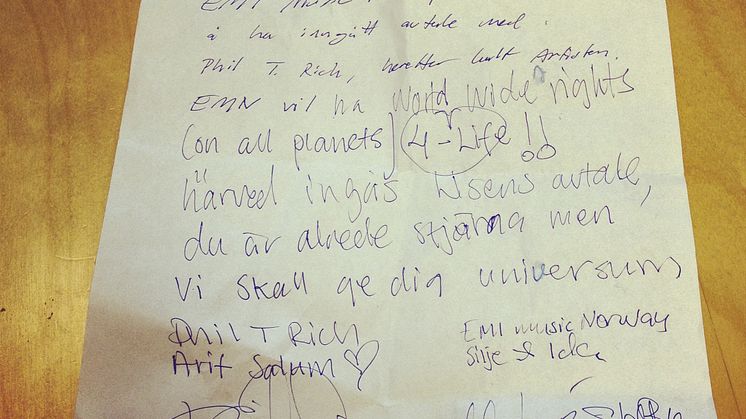 EMI
å ha inngått avtale med:
Phil T. Rich, heretter kalt Artisten.
EMN vil ha World wide rights
(on all planets) 4-Life!!
härved ingås lisens avtale,
du är alrede stjärna men
vi skall ge dig universum
Phil T Rich EMI music Norway
Arif Salum ♡ Silje &